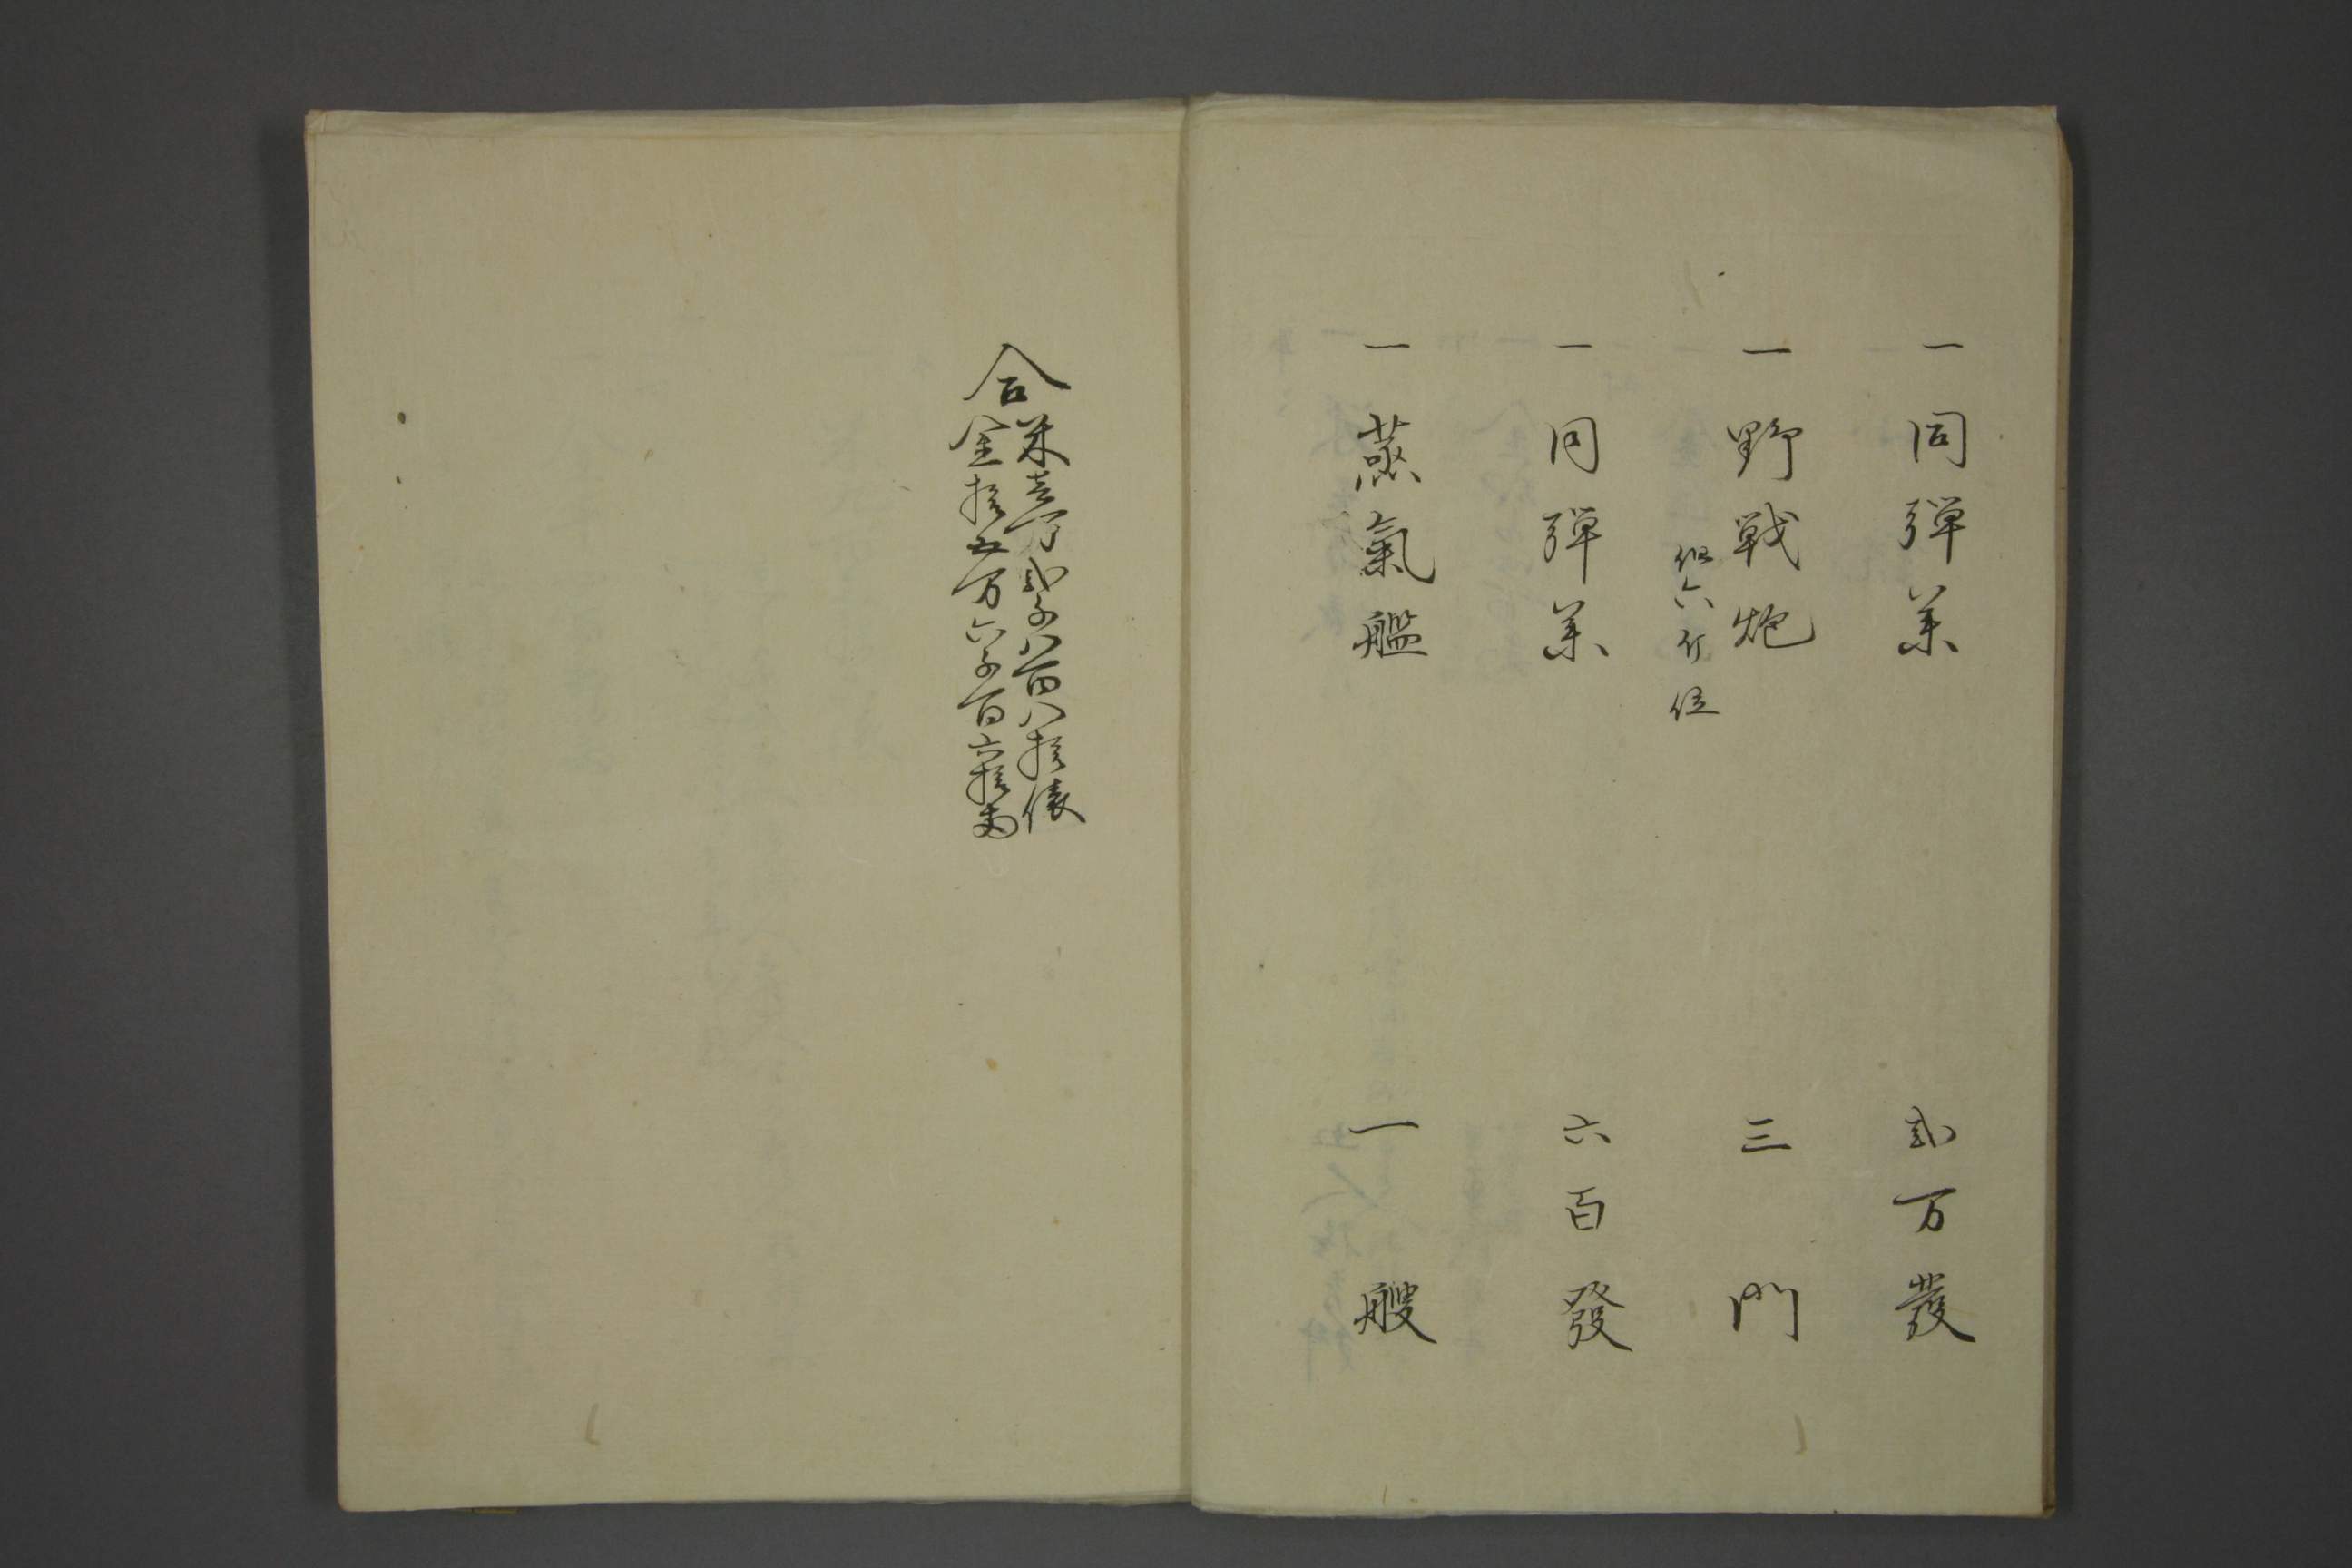 一同弾薬 弐万發
一野戦炮 三門
但六斤位
一同弾薬 六百發
一蒸氣艦 一艘
合米壱万弐千八百八拾俵
金拾五万六千百六拾両